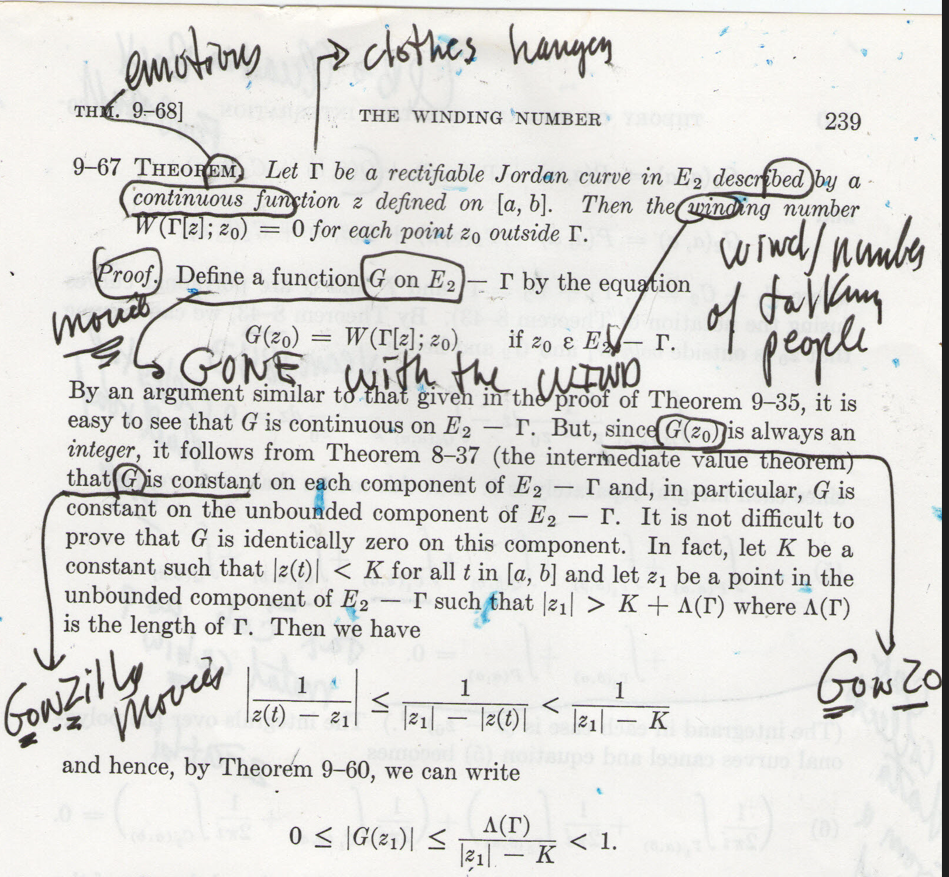 emotions → clothes hanger
THM. 9–68] THE WINDING NUMBER 239
9–67 THEOREM. Let Γ be a rectifiable Jordan curve in E₂ described by a
continuous function z defined on [a, b]. Then the winding number
W(Γ[z]; z₀) = 0 for each point z₀ outside Γ.
wind/number
of talking
people
Proof. Define a function G on E₂ — Γ by the equation
movie
G(z₀) = W(Γ[z]; z₀) if z₀ ε E₂ — Γ.
GONE WITH the WIND
By an argument similar to that given in the proof of Theorem 9–35, it is
easy to see that G is continuous on E₂ — Γ. But, since G(z₀) is always an
integer, it follows from Theorem 8–37 (the intermediate value theorem)
that G is constant on each component of E₂ — Γ and, in particular, G is
constant on the unbounded component of E₂ — Γ. It is not difficult to
prove that G is identically zero on this component. In fact, let K be a
constant such that |z(t)| < K for all t in [a, b] and let z₁ be a point in the
unbounded component of E₂ — Γ such that |z₁| > K + Λ(Γ) where Λ(Γ)
is the length of Γ. Then we have
Gowzilla movies
|1/(z(t) − z₁)| ≤ 1/(|z₁| − |z(t)|) < 1/(|z₁| − K)
Gowzo
and hence, by Theorem 9–60, we can write
0 ≤ |G(z₁)| ≤ Λ(Γ)/(|z₁| − K) < 1.